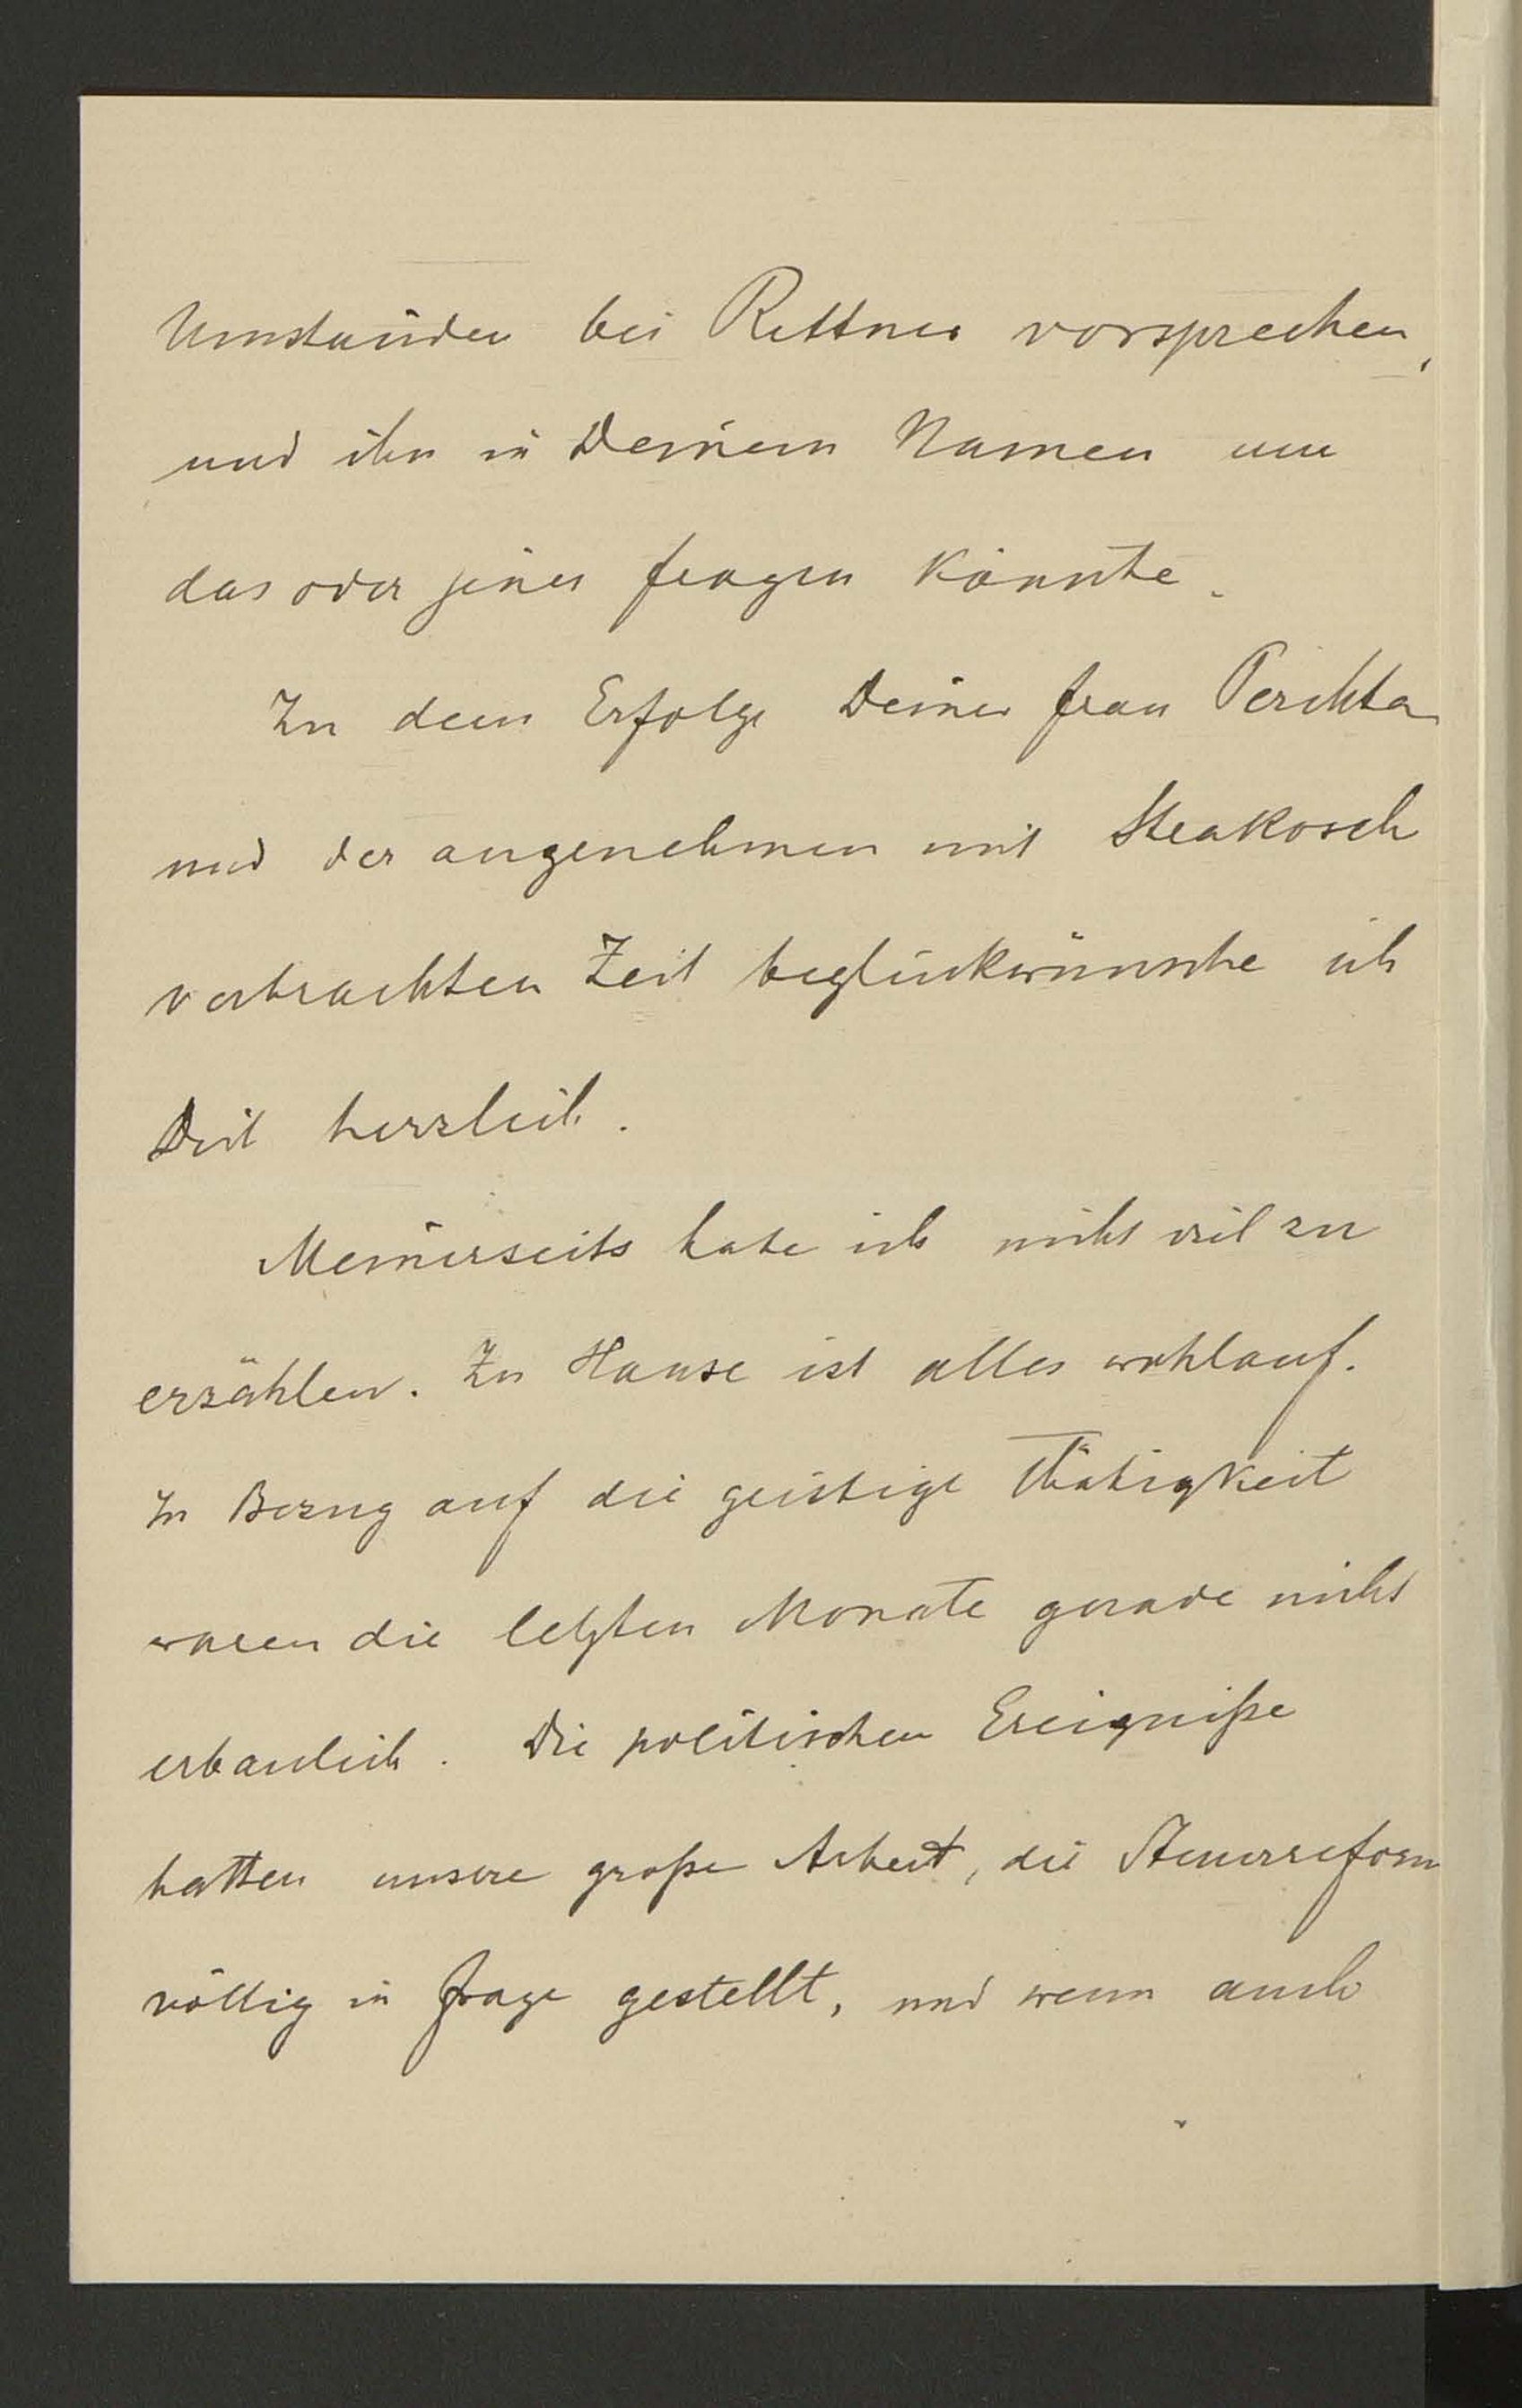 Umständen bei Rittner vorsprechen,
und ihn in Deinem Namen um
das oder jenes fragen könnte.
Zu dem Erfolge Deiner Frau Perchta
und der angenehmen mit Strakosch
verbrachten Zeit beglückwünsche ich
Dich herzlich.
Meinerseits habe ich nicht viel zu
erzählen. Zu Hause ist alles wohlauf.
In Bezug auf die geistige Thätigkeit
waren die letzten Monate gerade nicht
erbaulich. Die politischen Ereigniße
hatten unsere große Arbeit, die Steuerreform
völlig in Frage gestellt, und wenn auch